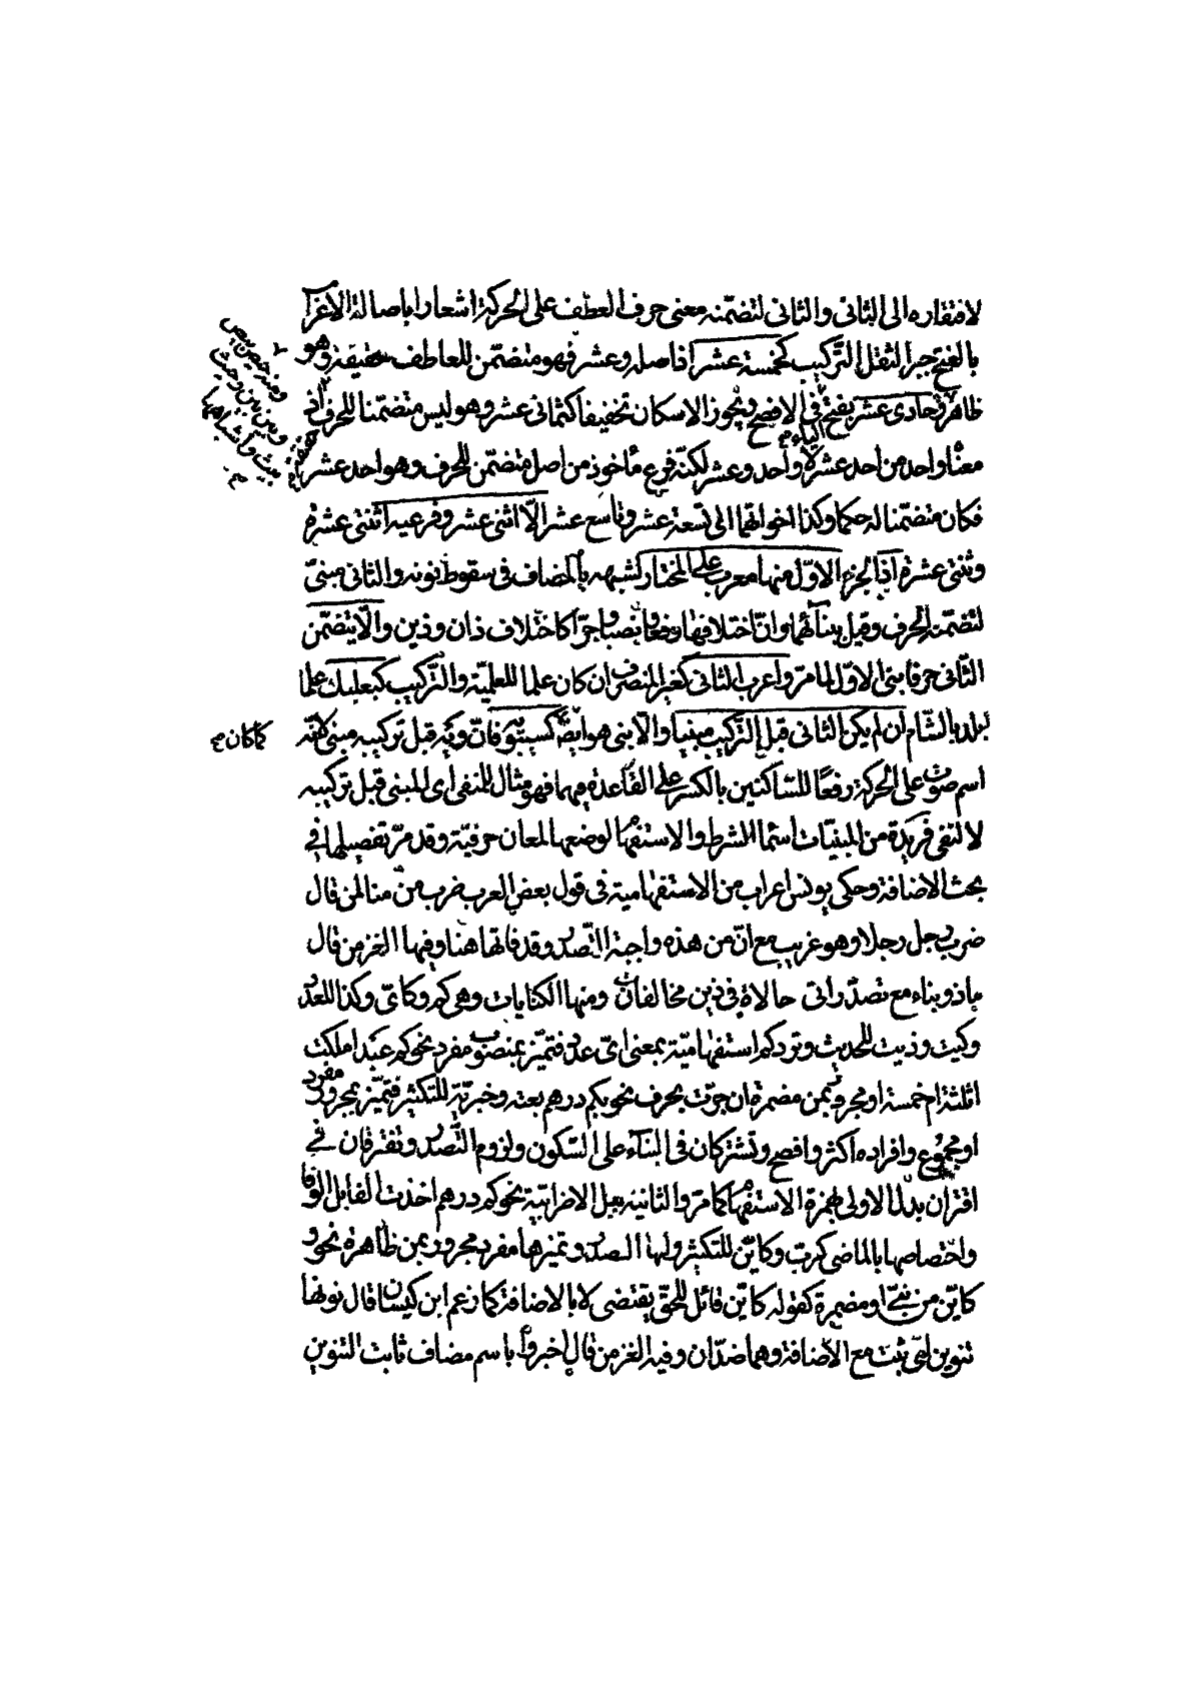 لافتقاره الى الثانى والثانى لتضمّنه معنى حرف العطف على الحركة اشعارا باصالة الاعرآ
بالفتح جبرا لثقل التركيب كخمسة عشر اذ اصله وعشر فهو متضمّن للعاطف حقيقة وهو
ظاهر وحادى عشر بفتح الياء فى الافصح ويجوز الاسكان تخفيفا كثمانى عشر وهو ليس متضمّنا للحرف اذ
معناه واحد من احد عشر لا واحد وعشر لكنّه فرع مأخوذ من اصل متضمّن للحرف وهو احد عشر
فكان متضمّنا له حكما وكذا اخواتهما الى تسعة عشر وتاسع عشر الّا اثنى عشر وفرعيه اثنتى عشرة
وثنتى عشرة اذا الجزء الاوّل منها معرب على المختار لشبهه بالمضاف فى سقوط نونه والثانى مبنىّ
لتضمّنه الحرف وقيل ببنآئهما وانّ اختلافها رفعا ونصبا وجرّا كاختلاف ذان وذين والّا يتضمّن
الثّانى حرفا بنى الاوّل لما مرّ واعرب الثانى كغير المنصرف ان كان علما للعلميّة والتّركيب كبعلبك علما
لبلد بالشّام ان لم يكن الثانى قبل التّركيب مبنيا والّا بنى هو ايضا كسيبويه فانّ ويه قبل تركيبه مبنى لانّه
كما كان صح
اسم صوت على الحركة رفعًا للسّاكنين بالكسر على القاعدة فيهما فهو مثال للمنفى اى المبنى قبل تركيبه
لا لنفى فريدة من المبنيّات اسما الشرط والاستفهام لوضعها لمعان حرفيّة وقد مرّ تفصيلها فى
بحث الاضافة وحكى يونس اعراب من الاستفهامية فى قول بعض العرب ضرب من منا لمن قال
ضرب رجل رجلا وهو غريب مع انّ من هذه واجبة التّصدر وقد فاتها هنا وفيها الغز من قال
ماذو بناء مع تصدّر اتى حالاة فى ذين مخالفان ومنها الكنايات وهى كم وكاىّ وكذا للعدد
وكيت وذيت للحديث وترد كم استفهاميّة بمعنى اىّ عدد فتميّز بمنصوب مفرد نحو كم عبدا ملكت
اثلثة ام خمسة او مجرور بمن مضمرة ان جرّت بحرف نحو بكم درهم بعته وخبريّة للتكثير فتميّز بمجرور مفرد
او مجموع وافراده اكثر وافصح وتشتركان فى البنآء على السّكون ولزوم التّصدر وتفترقان فى
اقتران بدل الاولى بهمزة الاستفهام كما مرّ والثانية ببل الاضرابيّة نحو كم درهم اخذت الف بل الوفا
واختصاصها بالماضى كربّ وكايّن للتكثير ولها الصدر وتميزها مفرد مجرور بمن ظاهرة نحو و
كايّن من نبىّ او مضمرة كقوله كايّن قائل للحقّ يقتضى لا بالاضافة كما زعم ابن كيسان قال نونها
تنوين اىّ ثبت مع الاضافة وهما ضدّان وفيه الغز من قال اخبروا باسم مضاف ثابت التنوين